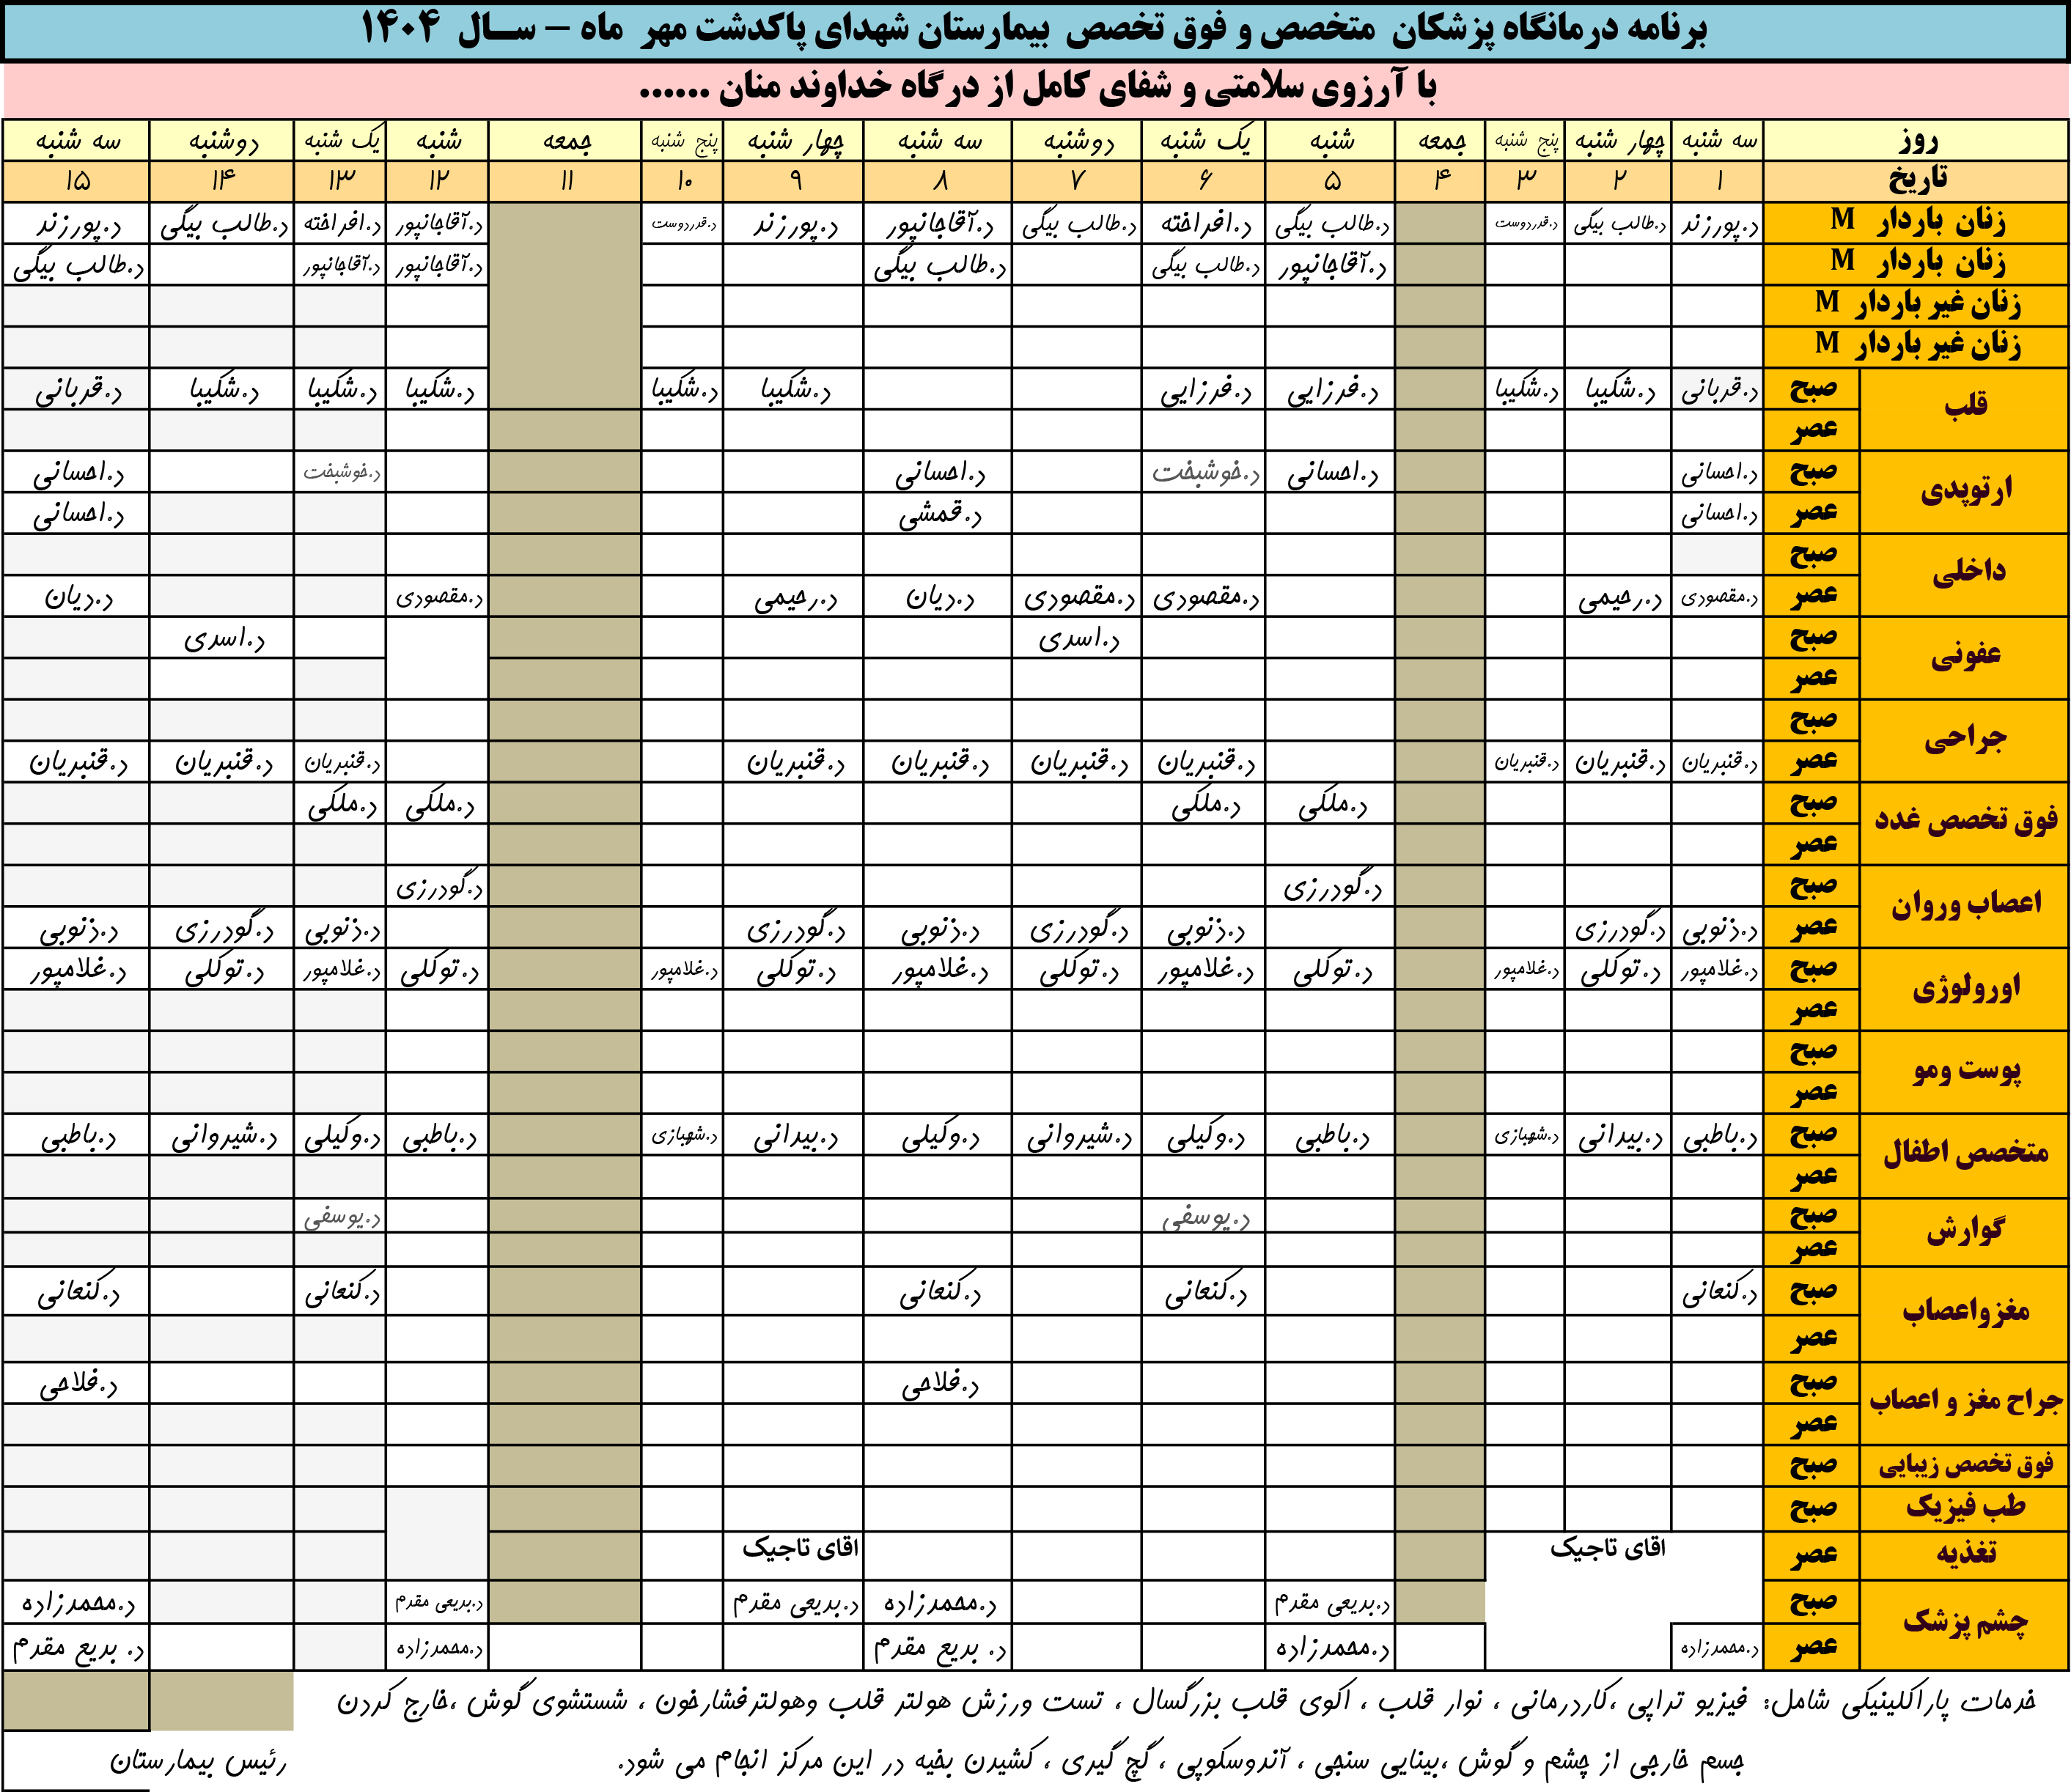 برنامه درمانگاه پزشکان متخصص و فوق تخصص بیمارستان شهدای پاکدشت مهر ماه – ســال ۱۴۰۴
با آرزوی سلامتی و شفای کامل از درگاه خداوند منان ......
روز سه شنبه چهار شنبه پنج شنبه جمعه شنبه یک شنبه دوشنبه سه شنبه چهار شنبه پنج شنبه جمعه شنبه یک شنبه دوشنبه سه شنبه
تاریخ ۱ ۲ ۳ ۴ ۵ ۶ ۷ ۸ ۹ ۱۰ ۱۱ ۱۲ ۱۳ ۱۴ ۱۵
زنان باردار M د.پورزند د.طالب بیگی د.قدردوست د.طالب بیگی د.افراخته د.طالب بیگی د.آقاجانپور د.پورزند د.قدردوست د.آقاجانپور د.افراخته د.طالب بیگی د.پورزند
زنان باردار M د.آقاجانپور د.طالب بیگی د.طالب بیگی د.آقاجانپور د.آقاجانپور د.طالب بیگی
زنان غیر باردار M
زنان غیر باردار M
قلب صبح د.قربانی د.شکیبا د.شکیبا د.فرزایی د.فرزایی د.شکیبا د.شکیبا د.شکیبا د.شکیبا د.شکیبا د.قربانی
عصر
ارتوپدی صبح د.احسانی د.احسانی د.خوشبخت د.احسانی د.خوشبخت د.احسانی
عصر د.احسانی د.قمشی د.احسانی
داخلی صبح
عصر د.مقصودی د.رحیمی د.مقصودی د.مقصودی د.دیان د.رحیمی د.مقصودی د.دیان
عفونی صبح د.اسدی د.اسدی
عصر
جراحی صبح
عصر د.قنبریان د.قنبریان د.قنبریان د.قنبریان د.قنبریان د.قنبریان د.قنبریان د.قنبریان د.قنبریان د.قنبریان
فوق تخصص غدد صبح د.ملکی د.ملکی د.ملکی د.ملکی
عصر
اعصاب وروان صبح د.گودرزی د.گودرزی
عصر د.ذنوبی د.گودرزی د.ذنوبی د.گودرزی د.ذنوبی د.گودرزی د.ذنوبی د.گودرزی د.ذنوبی
اورولوژی صبح د.غلامپور د.توکلی د.غلامپور د.توکلی د.غلامپور د.توکلی د.غلامپور د.توکلی د.غلامپور د.توکلی د.غلامپور د.توکلی د.غلامپور
عصر
پوست ومو صبح
عصر
متخصص اطفال صبح د.باطبی د.بیدانی د.شهبازی د.باطبی د.وکیلی د.شیروانی د.وکیلی د.بیدانی د.شهبازی د.باطبی د.وکیلی د.شیروانی د.باطبی
عصر
گوارش صبح د.یوسفی د.یوسفی
عصر
مغزواعصاب صبح د.کنعانی د.کنعانی د.کنعانی د.کنعانی د.کنعانی
عصر
جراح مغز و اعصاب صبح د.فلاحی د.فلاحی
عصر
فوق تخصص زیبایی صبح
طب فیزیک صبح
تغذیه عصر اقای تاجیک اقای تاجیک
چشم پزشک صبح د.بدیعی مقدم د.محمدزاده د.بدیعی مقدم د.بدیعی مقدم د.محمدزاده
عصر د.محمدزاده د.محمدزاده د. بدیع مقدم د.محمدزاده د. بدیع مقدم
خدمات پاراکلینیکی شامل: فیزیو تراپی ،کاردرمانی ، نوار قلب ، اکوی قلب بزرگسال ، تست ورزش هولتر قلب وهولترفشارخون ، شستشوی گوش ،خارج کردن
جسم خارجی از چشم و گوش ،بینایی سنجی ، آندوسکوپی ، گچ گیری ، کشیدن بخیه در این مرکز انجام می شود. رئیس بیمارستان